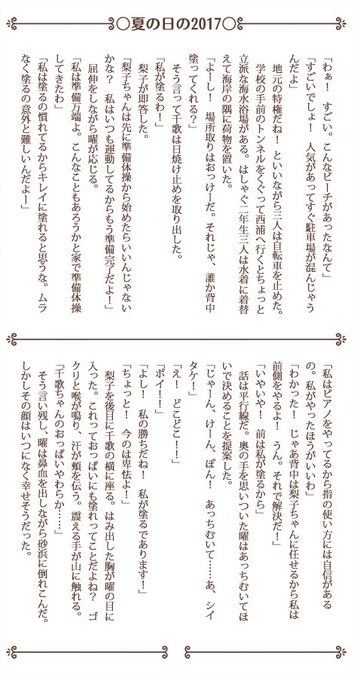 ○夏の日の2017○
「わぁ！　すごい。こんなビーチがあったなんて」
「すごいでしょ！　人気があってすぐ駐車場が混んじゃう
んだよ」
　地元の特権だね！　といいながら三人は自転車を止めた。
　学校の手前のトンネルをくぐって西浦へ行くとちょっと
立派な海水浴場がある。はしゃぐ二年生三人は水着に着替
えて海岸の隅に荷物を置いた。
「よーし！　場所取りはおっけーだ。それじゃ、誰か背中
塗ってくれる？」
　そう言って千歌は日焼け止めを取り出した。
「私が塗るわ！」
　梨子が即答した。
「梨子ちゃんは先に準備体操から始めたらいいんじゃない
かな？　私はいつも運動してるからもう準備完了だよ！」
　屈伸をしながら曜が応じる。
「私は準備万端よ。こんなこともあろうかと家で準備体操
してきたわ」
「私は塗るの慣れてるからキレイに塗れると思うな。ムラ
なく塗るの意外と難しいんだよー」
「私はピアノをやってるから指の使い方には自信がある
の。私がやったほうがいいわ」
「わかった！　じゃあ背中は梨子ちゃんに任せるから私は
前側をやるよ！　うん。それで解決だ！」
「いやいや！　前は私が塗るから」
　話は平行線だ。奥の手を思いついた曜はあっちむいてほ
いで決めることを提案した。
「じゃーん、けーん、ぽん！　あっちむいて……あ、シイ
タケ！」
「え！　どこどこ！」
「ポイ！！」
「よし！　私の勝ちだね！　私が塗るであります！」
「ちょっと！　今のは卑怯よ！」
　梨子を後目に千歌の横に座る。はみ出した胸が曜の目に
入った。これっておっぱいにも塗れってことだよね？　ゴ
クリと喉が鳴り、汗が頬を伝う。震える手が山に触れる。
「千歌ちゃんのおっぱいやわらか……」
　そう言い残し、曜は鼻血を出しながら砂浜に倒れこんだ。
しかしその顔はいつになく幸せそうだった。